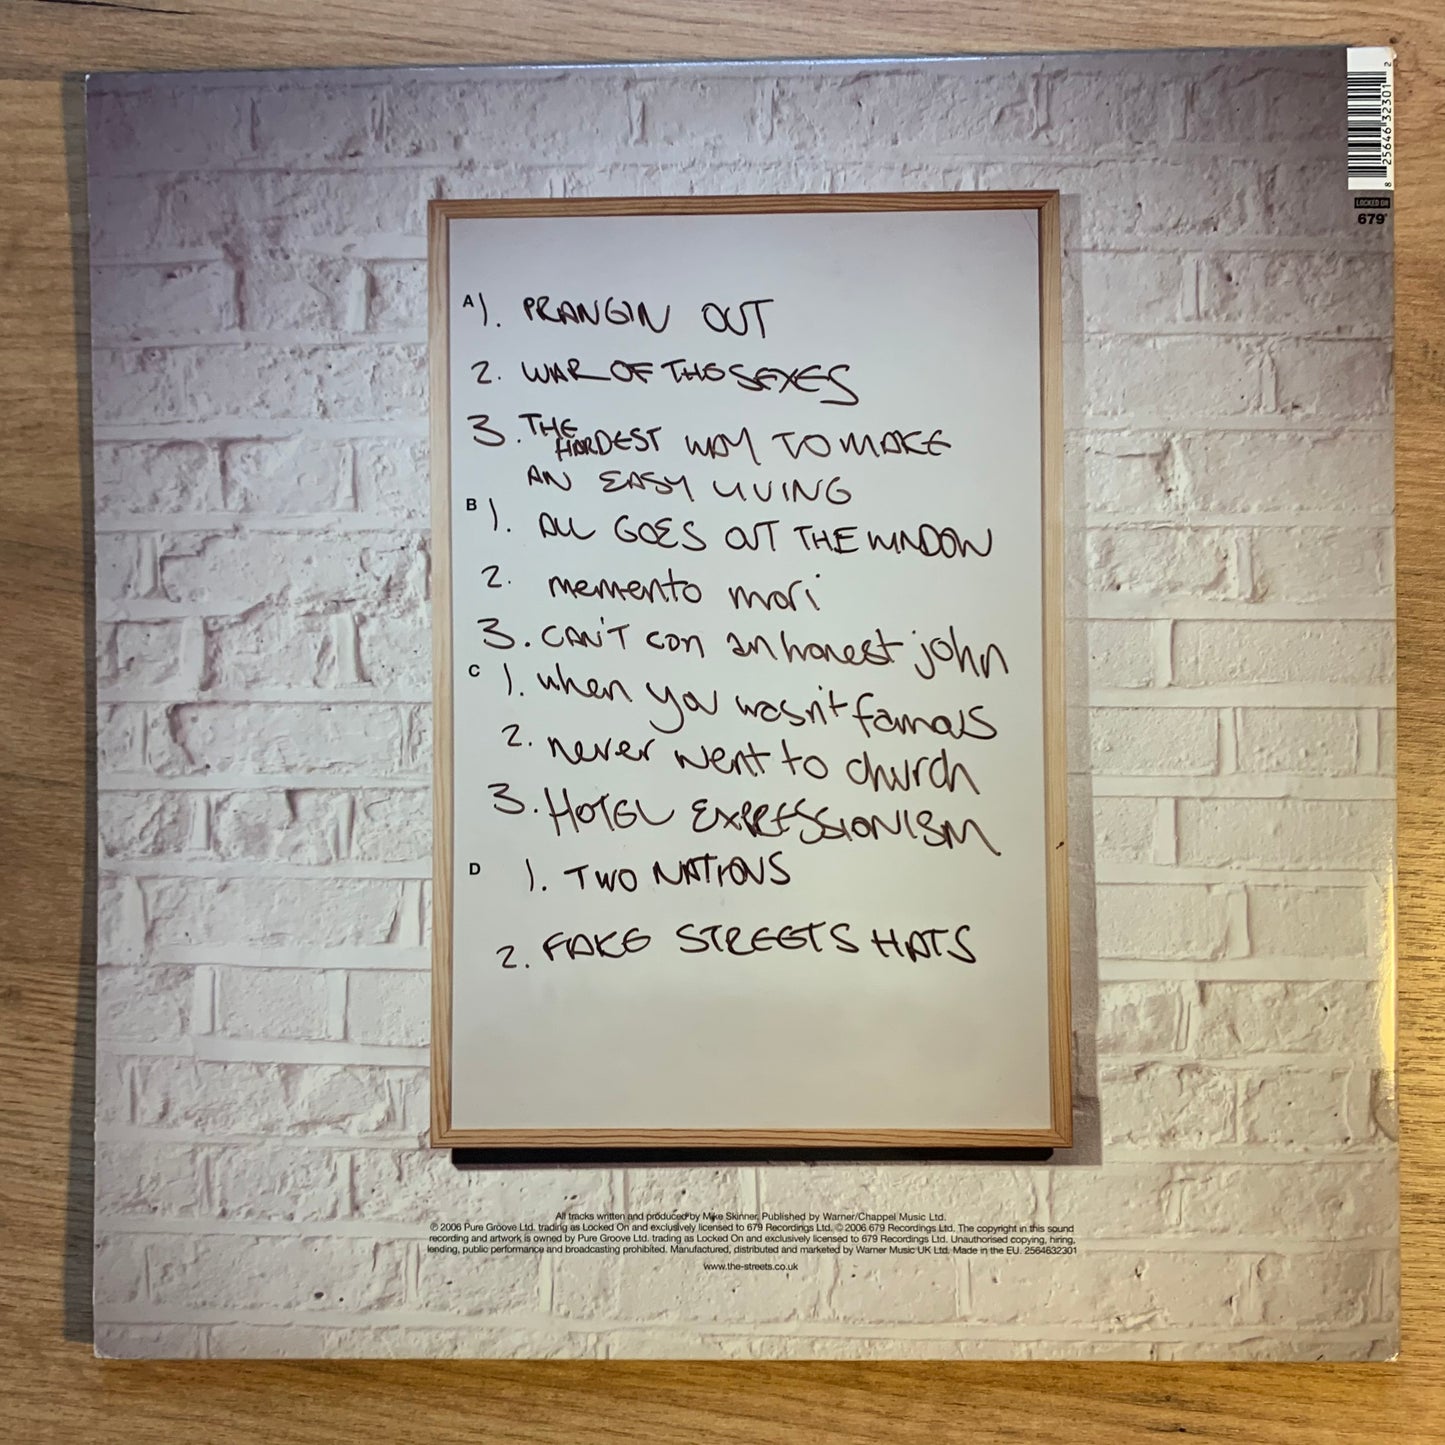 8 25646 32301 2
LOCKED ON
679
A 1. PRANGIN OUT
2. WAR OF THE SEXES
3. THE HARDEST WAY TO MAKE
AN EASY LIVING
B 1. ALL GOES OUT THE WINDOW
2. memento mori
3. CAN'T con an honest john
C 1. when you wasn't famous
2. never went to church
3. HOTEL EXPRESSIONISM
D 1. TWO NATIONS
2. FAKE STREETS HATS
All tracks written and produced by Mike Skinner. Published by Warner/Chappel Music Ltd.
℗ 2006 Pure Groove Ltd. trading as Locked On and exclusively licensed to 679 Recordings Ltd. © 2006 679 Recordings Ltd. The copyright in this sound
recording and artwork is owned by Pure Groove Ltd. trading as Locked On and exclusively licensed to 679 Recordings Ltd. Unauthorised copying, hiring,
lending, public performance and broadcasting prohibited. Manufactured, distributed and marketed by Warner Music UK Ltd. Made in the EU. 2564632301
www.the-streets.co.uk